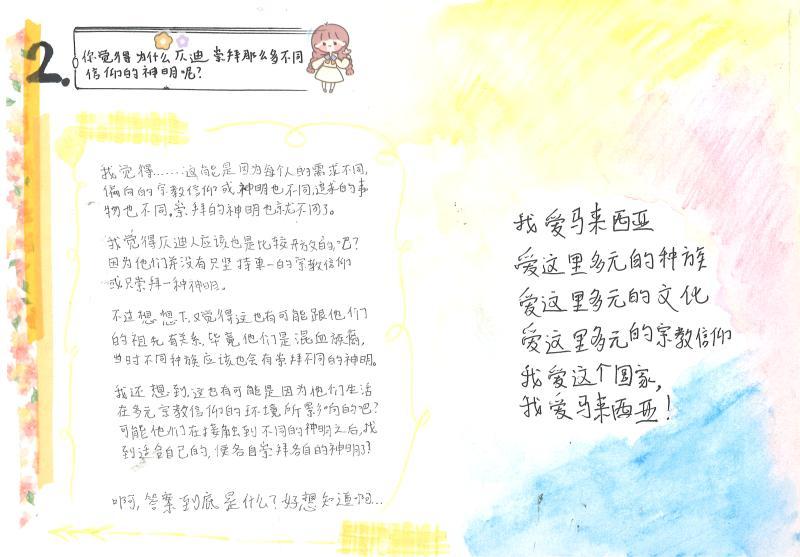 2.
你觉得为什么仄迪崇拜那么多不同
信仰的神明呢?
我觉得……这能是因为每个人的需求不同,
偏向的宗教信仰或神明也不同,追求的事
物也不同,崇拜的神明也就不同了。
我觉得仄迪人应该也是比较开放的吧?
因为他们并没有只坚持单一的宗教信仰
或只崇拜一种神明。
不过想想下,又觉得这也有可能跟他们
的祖先有关系,毕竟他们是混血族裔,
当时不同种族应该也会有崇拜不同的神明。
我还想到,这也有可能是因为他们生活
在多元宗教信仰的环境所影响的吧?
可能他们在接触到不同的神明之后,找
到适合自己的,便各自崇拜各自的神明了?
啊啊,答案到底是什么?好想知道啊…
我爱马来西亚
爱这里多元的种族
爱这里多元的文化
爱这里多元的宗教信仰
我爱这个国家,
我爱马来西亚!